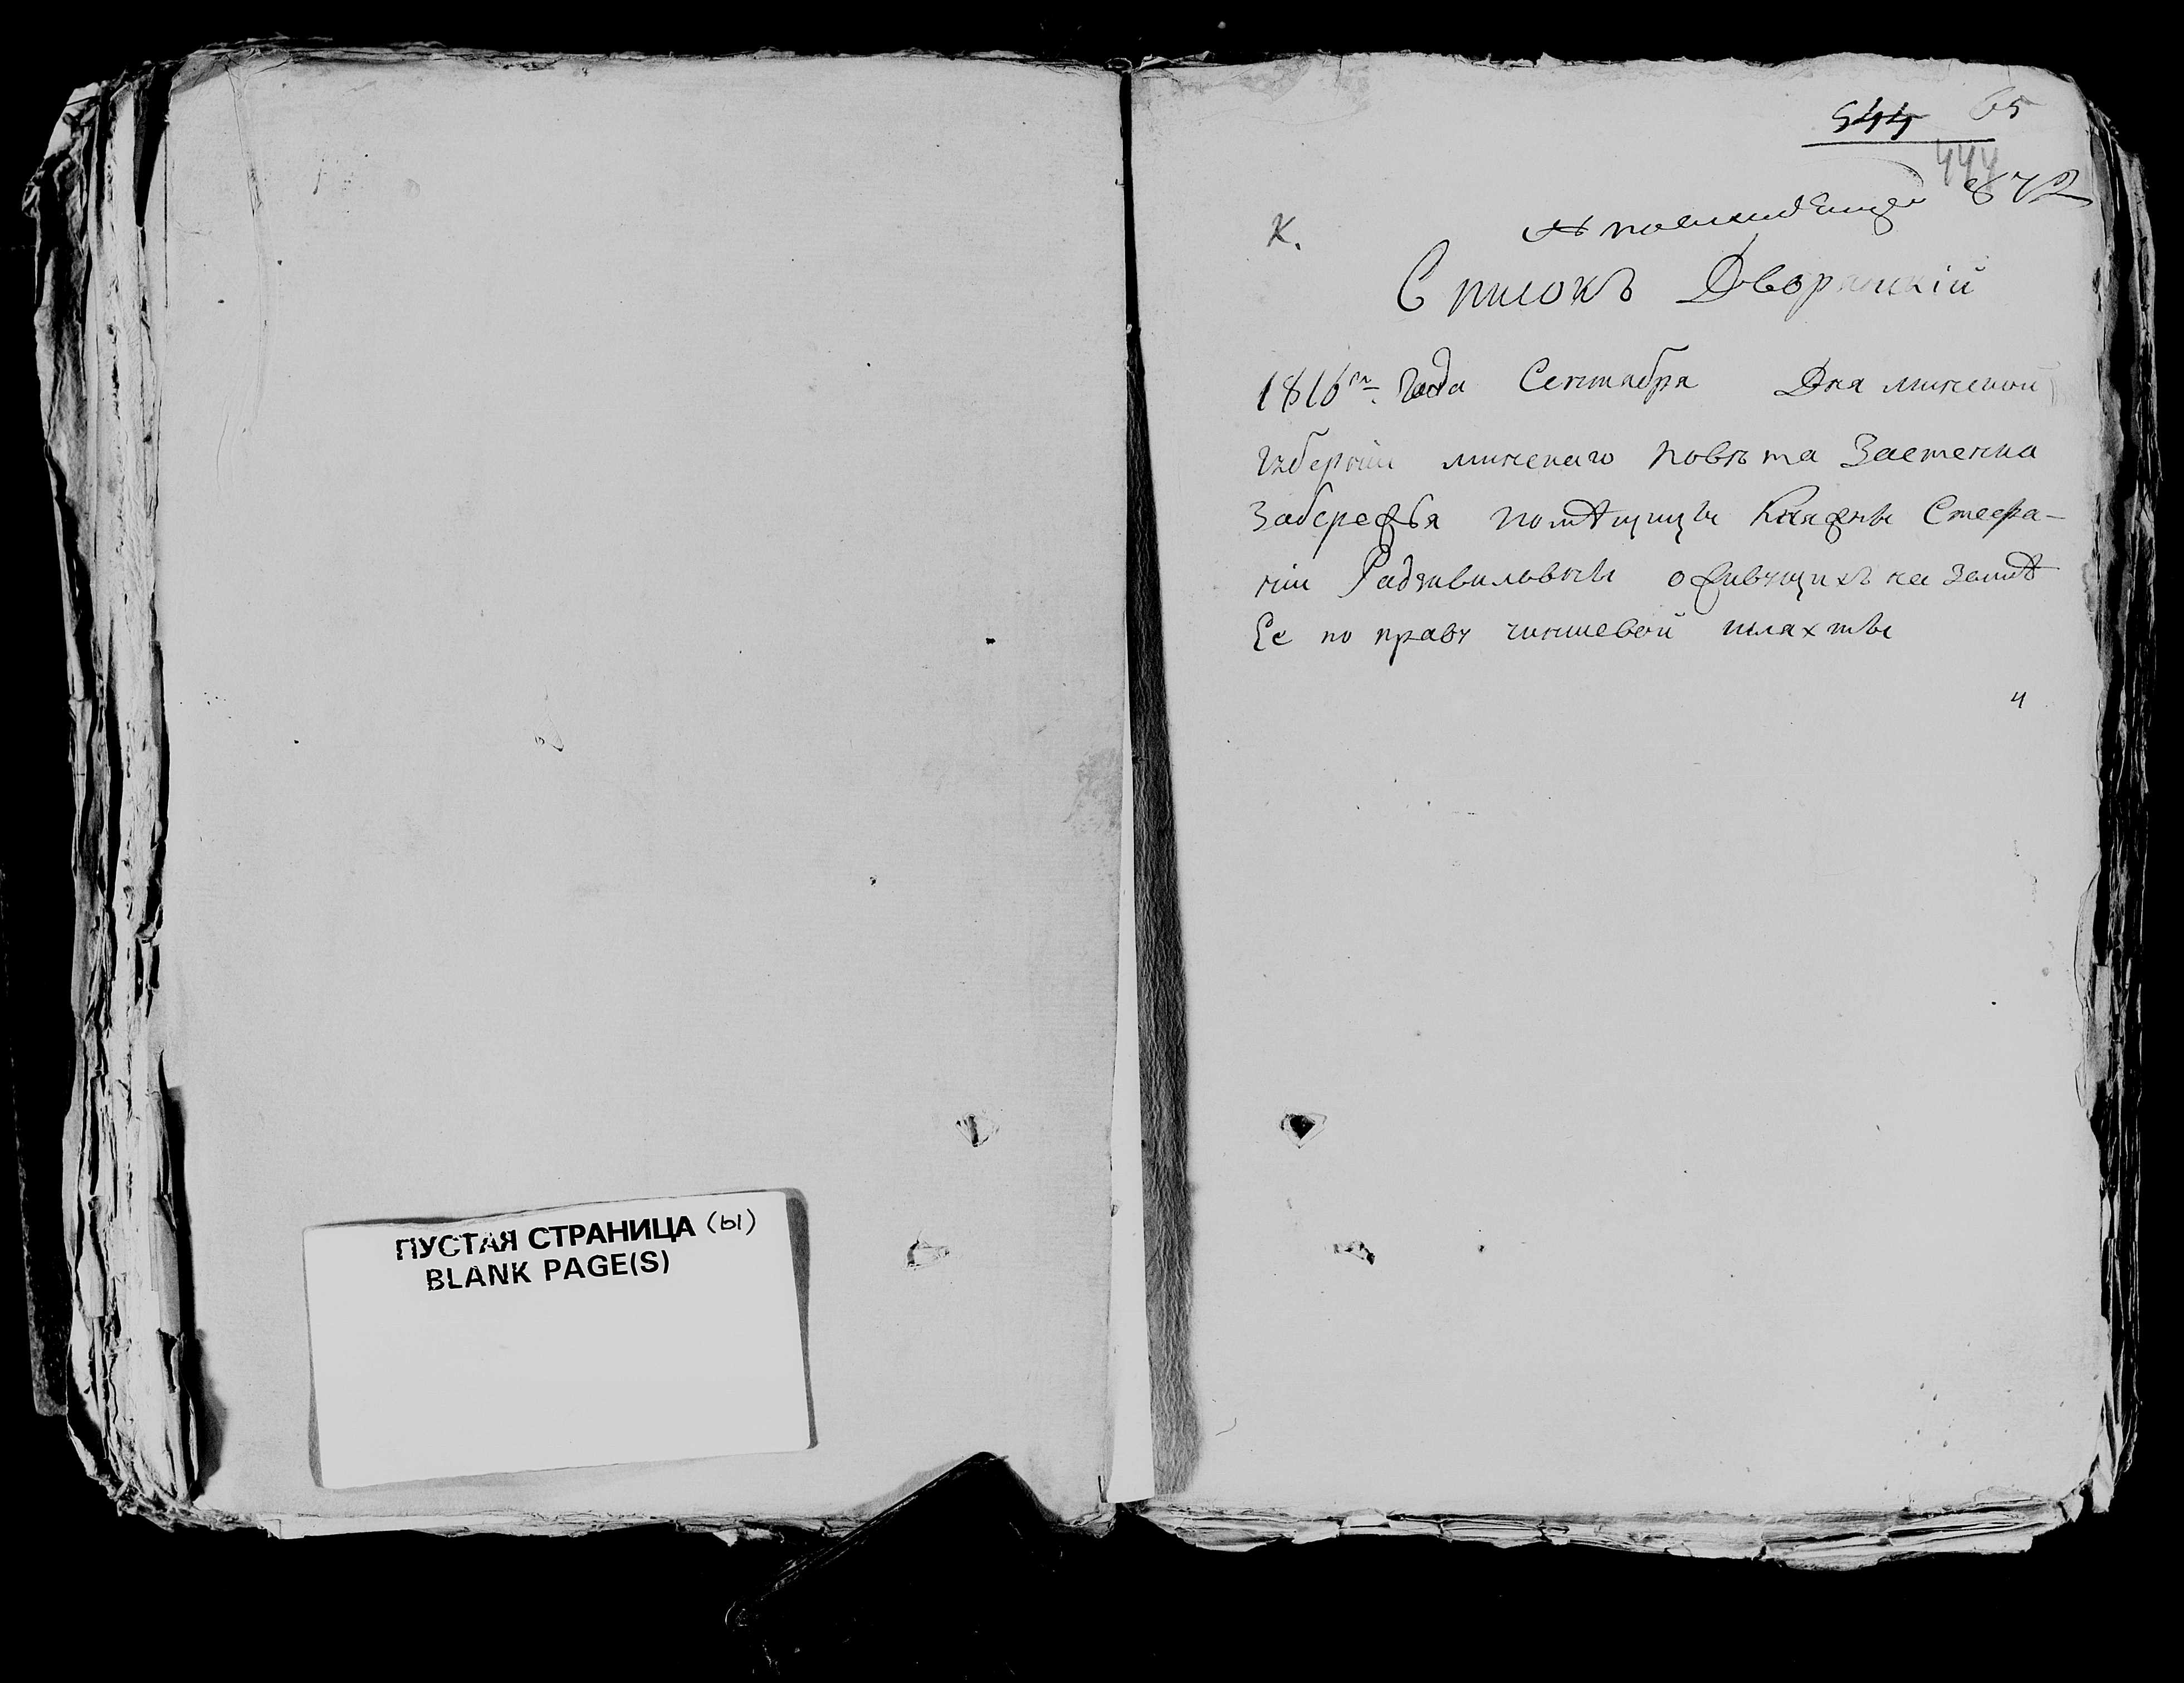 ПУСТАЯ СТРАНИЦА (ы)
BLANK PAGE(S)
544 65
444
872
К.
Списокъ Дворянскій
1816го. Года Сентября Дня минской
Губерніи минскаго повѣта Застенка
Забережья помѣщицы Княжны Стефа-
ніи Радзивиловны оживущихъ на землѣ
Ее по праву чиншевой шляхты
4